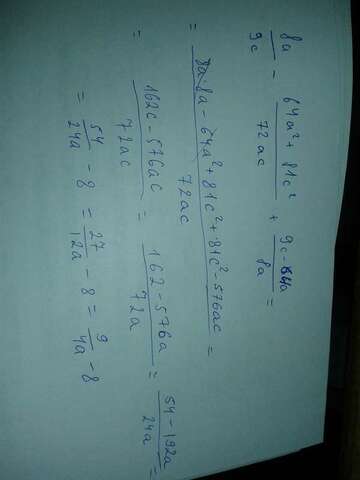 8a/9c - (64a² + 81c²)/72ac + (9c - 64a)/8a =
= (8a·8a - 64a² + 81c² + 81c² - 576ac)/72ac =
= (162c - 576ac)/72ac = (162 - 576a)/72a = (54 - 192a)/24a =
= 54/24a - 8 = 27/12a - 8 = 9/4a - 8